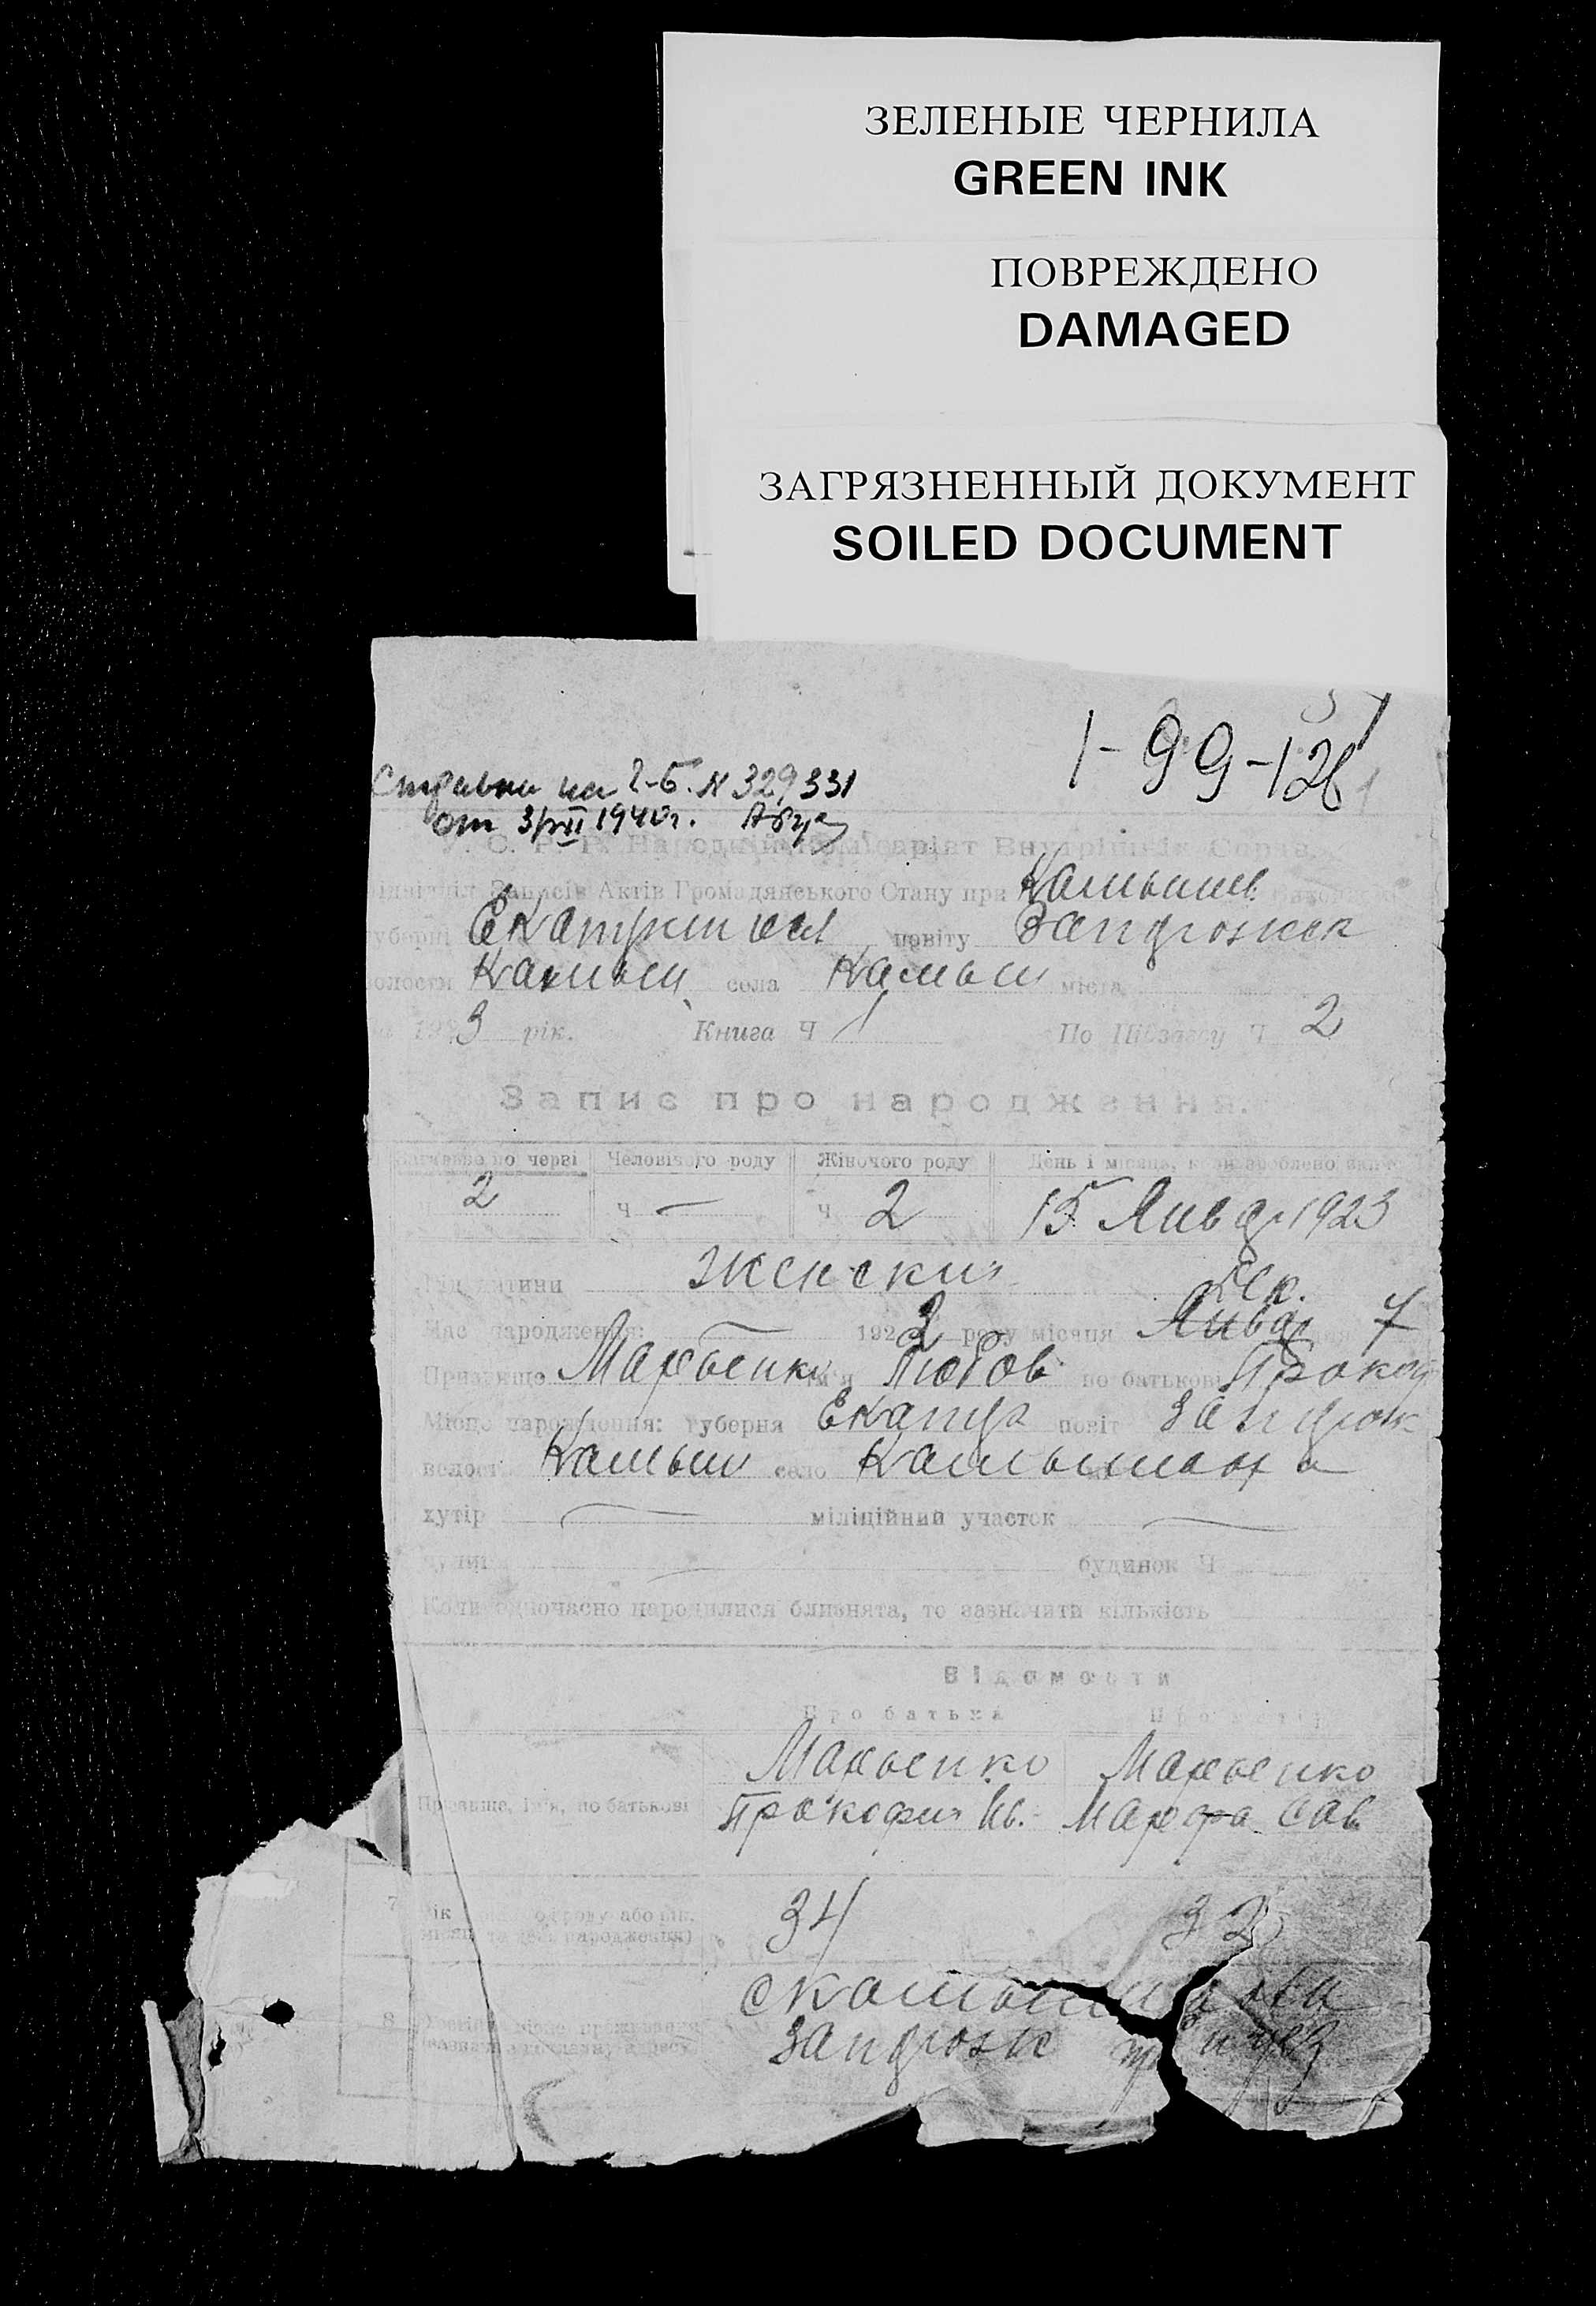 ЗЕЛЕНЫЕ ЧЕРНИЛА
GREEN INK
ПОВРЕЖДЕНО
DAMAGED
ЗАГРЯЗНЕННЫЙ ДОКУМЕНТ
SOILED DOCUMENT
1-99-126
Справка на 2-Б. N 329331
от 3/VII 1940 г.
У. С. Р. Р. Народній Комісаріат Внутрішніх Справ
Записів Актів Громадянського Стану при Камышев.
Екатерин повіту Запорожск
Камыш села Камыш міста
192 3 рік. Книга Ч 1 По Підзагсу Ч 2
Запис про народження.
по черзі Человічого роду Жіночого роду День і місяць,
2 Ч — Ч 2 15 Январ 1923
женский
Дек.
Час народження: — 192 2 року місяця Январ 7
Призвище Марьенко Ім'я Любов по батькові Прокоф
Місце народження: губерня Екатер повіт Запорож
волость Камыш село Камышеваха
хутір — міліційний участок —
вулиця — будинок Ч
Коли одночасно народилися близнята, то зазначити кількість
Відомости
Про батька Про матір
Марьенко Марьенко
Призвище, ім'я, по батькові Прокофий Ив. Марфа Сав.
7 34 32
місяць та день народження)
8 с Камышеваха
Запорож